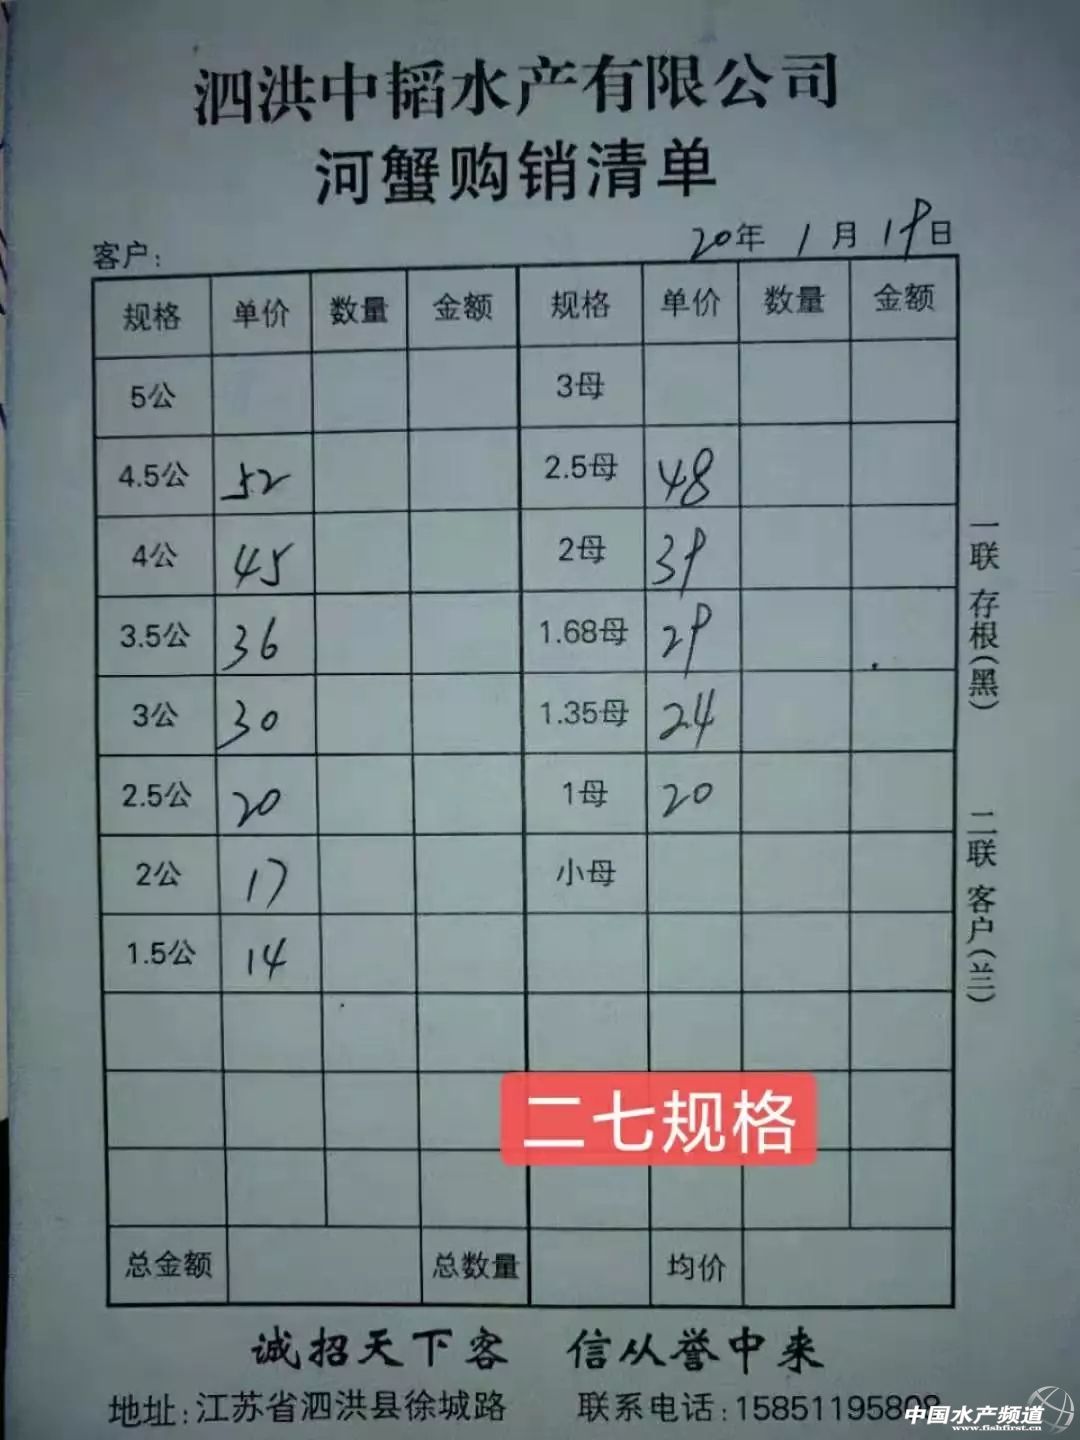 泗洪中韬水产有限公司
河蟹购销清单
客户: 20年 1月 19日
规格 单价 数量 金额 规格 单价 数量 金额
5公 3母
4.5公 52 2.5母 48
4公 45 2母 39
3.5公 36 1.68母 29
3公 30 1.35母 24
2.5公 20 1母 20
2公 17 小母
1.5公 14
一联 存根(黑)
二联 客户(兰)
二七规格
总金额 总数量 均价
诚招天下客 信从誉中来
地址:江苏省泗洪县徐城路 联系电话:15851195808
中国水产频道
www.fishfirst.cn